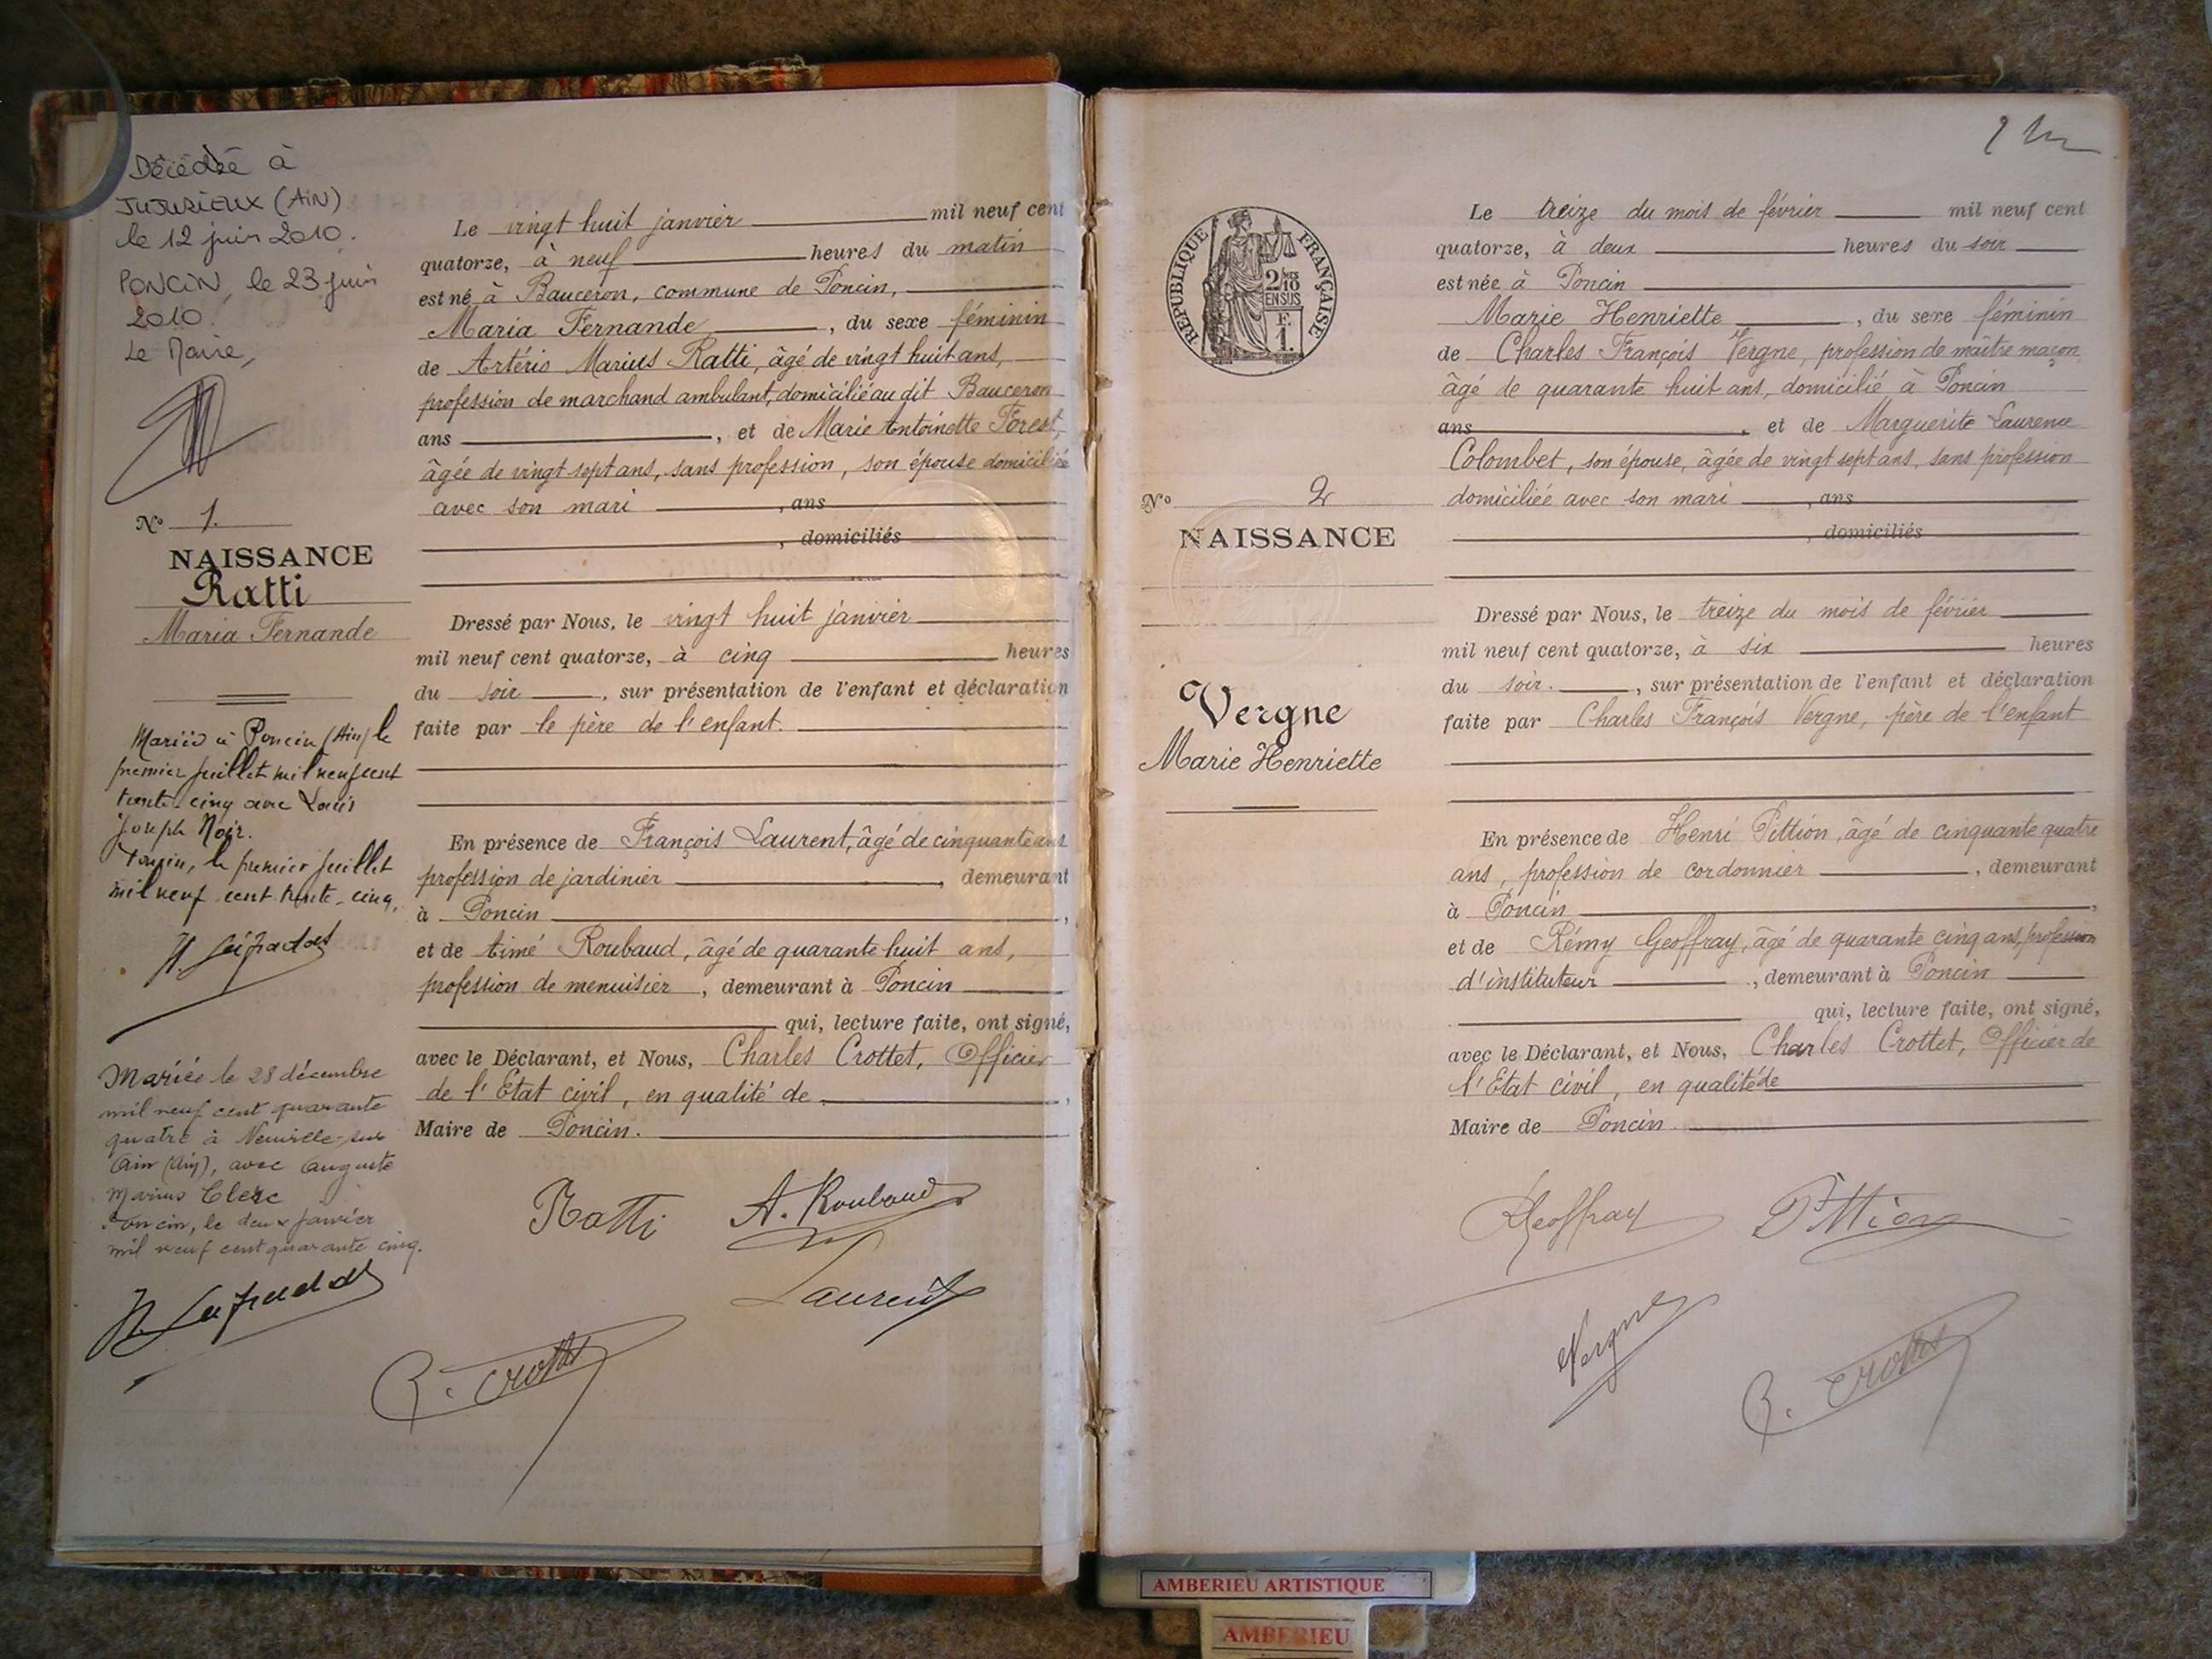 Décédée à
JUJURIEUX (AIN)
le 12 juin 2010.
PONCIN, le 23 juin
2010.
Le Maire,
N° 1.
NAISSANCE
Ratti
Maria Fernande
Mariée à Poncin (Ain) le
premier juillet mil neuf cent
trente-cinq avec Louis
Joseph Noir.
Poncin, le premier juillet
mil neuf cent trente-cinq.
Mariée le 28 décembre
mil neuf cent quarante
quatre à Neuville-sur
Ain (Ain), avec Auguste
Marius Clerc
Poncin, le deux janvier
mil neuf cent quarante cinq.
Le vingt huit janvier mil neuf cent
quatorze, à neuf heures du matin
est né à Bauceron, commune de Poncin,
Maria Fernande, du sexe féminin
de Artério Marius Ratti, âgé de vingt huit ans,
profession de marchand ambulant, domicilié au dit Bauceron
ans, et de Marie Antoinette Forest,
âgée de vingt sept ans, sans profession, son épouse domiciliée
avec son mari, ans
, domiciliés
Dressé par Nous, le vingt huit janvier
mil neuf cent quatorze, à cinq heures
du soir, sur présentation de l'enfant et déclaration
faite par le père de l'enfant.
En présence de François Laurent, âgé de cinquante ans
profession de jardinier, demeurant
à Poncin,
et de Aimé Roubaud, âgé de quarante huit ans,
profession de menuisier, demeurant à Poncin
qui, lecture faite, ont signé,
avec le Déclarant, et Nous, Charles Crottet, Officier
de l'Etat civil, en qualité de,
Maire de Poncin.
Ratti A. Roubaud
Laurent
C. Crottet
2
REPUBLIQUE FRANÇAISE
2/10
EN SUS
F.
1.
N° 2
NAISSANCE
Vergne
Marie Henriette
Le treize du mois de février mil neuf cent
quatorze, à deux heures du soir
est née à Poncin
Marie Henriette, du sexe féminin
de Charles François Vergne, profession de maître maçon,
âgé de quarante huit ans, domicilié à Poncin
ans, et de Marguerite Laurence
Colombet, son épouse, âgée de vingt sept ans, sans profession
domiciliée avec son mari, ans
, domiciliés
Dressé par Nous, le treize du mois de février
mil neuf cent quatorze, à six heures
du soir., sur présentation de l'enfant et déclaration
faite par Charles François Vergne, père de l'enfant
En présence de Henri Pittion, âgé de cinquante quatre
ans, profession de cordonnier, demeurant
à Poncin,
et de Rémy Geoffray, âgé de quarante cinq ans, profession
d'instituteur, demeurant à Poncin
qui, lecture faite, ont signé,
avec le Déclarant, et Nous, Charles Crottet, Officier de
l'Etat civil, en qualité de
Maire de Poncin.
RGeoffray Pittion
Vergne
C. Crottet
AMBERIEU ARTISTIQUE
AMBERIEU